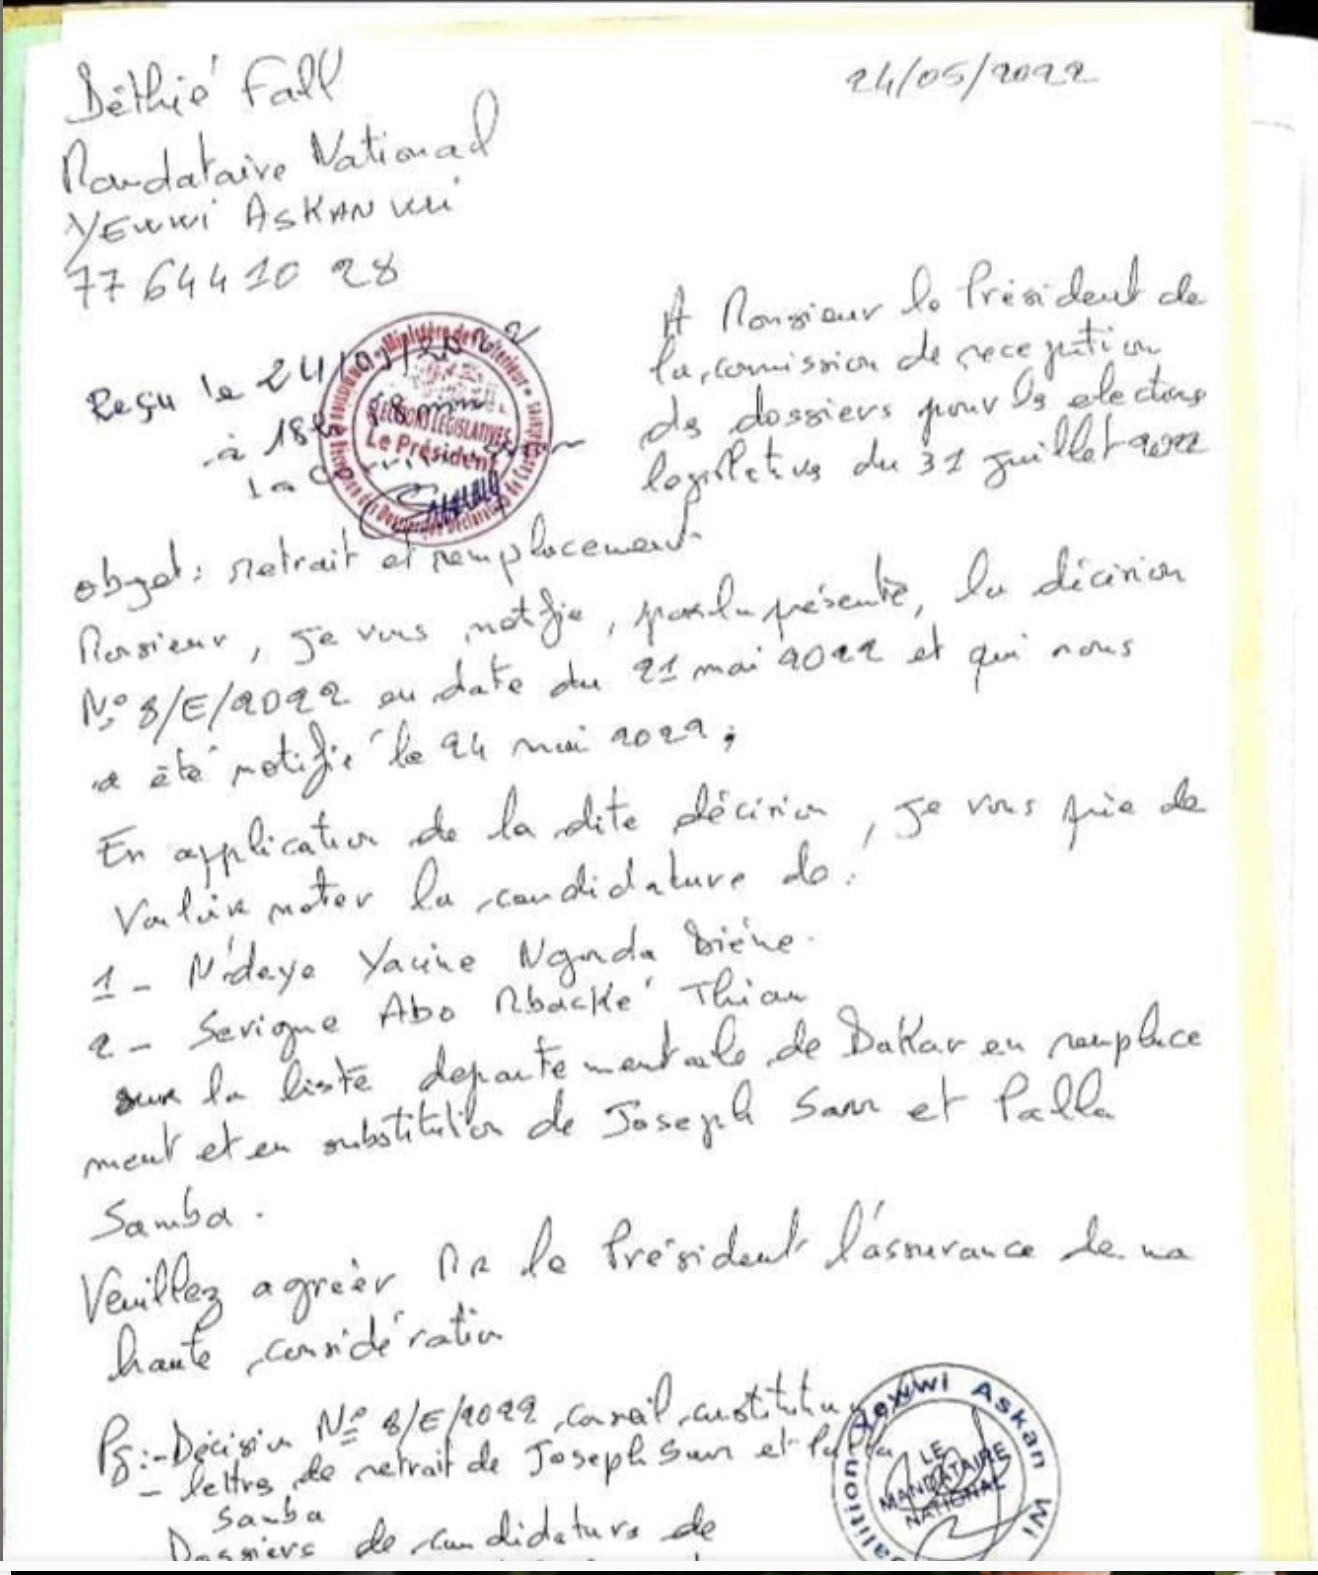 Déthié Fall
24/05/2022
Mandataire National
YEWWi ASKAN Wi
77 644 10 28
A Monsieur le Président de
la comission de reception
des dossiers pour les elections
legislatives du 31 juillet 2022
Reçu le 24/05/2022
à 18h 18 mn
La
Ministère de l'Interieur
ELECTIONS LEGISLATIVES
Le Président
objet: retrait et remplacement
Monsieur, je vous notifie, par la présente, la décision
N° 8/E/2022 en date du 21 mai 2022 et qui nous
a été notifié le 24 mai 2022;
En application de la dite décision, je vous prie de
Vouloir noter la candidature de:
1 - Ndeye Yacine Ngonda Diéne.
2 - Serigne Abo Mbacké Thiam
sur la liste departementale de Dakar en remplace
ment et en substitution de Joseph Sarr et Palla
Samba.
Veuillez agréer Mr le Président l'assurance de ma
haute considération
PJ: - Décision N° 8/E/2022 conseil constitu
- lettres de retrait de Joseph Sarr et Palla
Samba
Dossiers de candidature de
Coalition Yewwi Askan Wi
LE
MANDATAIRE
NATIONAL